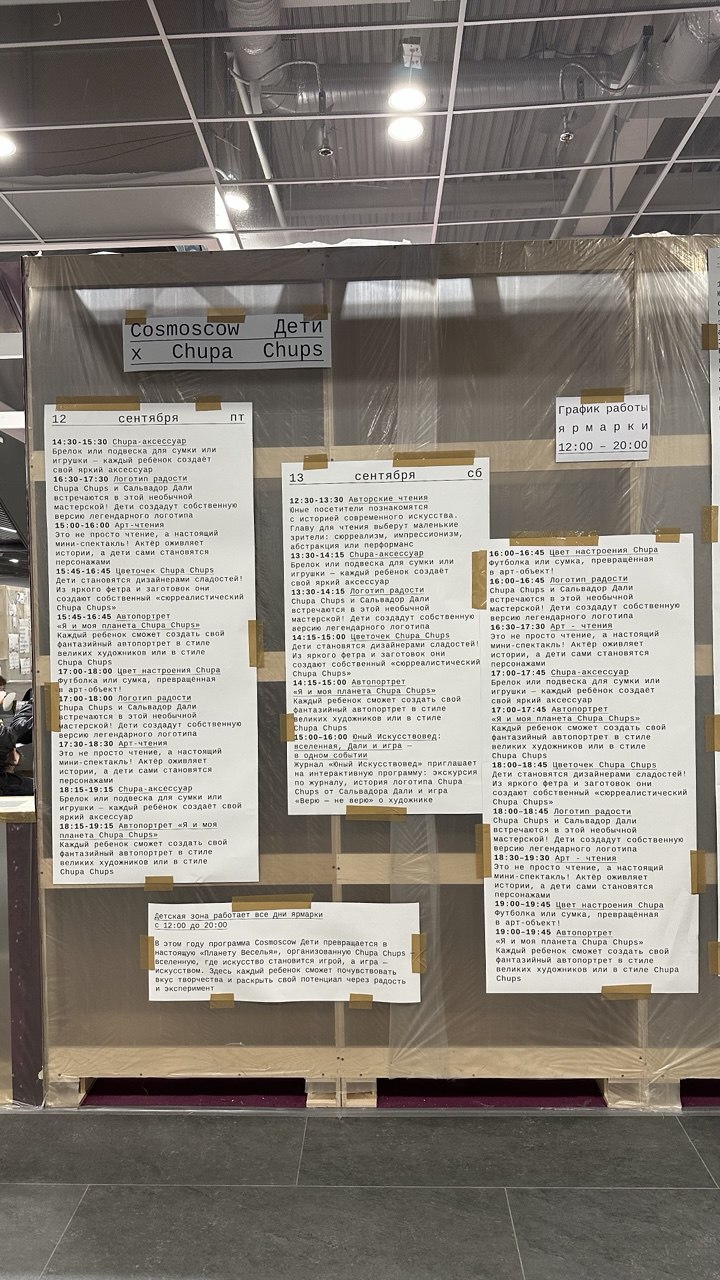 Cosmoscow Дети
x Chupa Chups
12 сентября пт
14:30-15:30 Chupa-аксессуар
Брелок или подвеска для сумки или
игрушки — каждый ребенок создаёт
свой яркий аксессуар
16:30-17:30 Логотип радости
Chupa Chups и Сальвадор Дали
встречаются в этой необычной
мастерской! Дети создадут собственную
версию легендарного логотипа
15:00-16:00 Арт-чтения
Это не просто чтение, а настоящий
мини-спектакль! Актёр оживляет
истории, а дети сами становятся
персонажами
15:45-16:45 Цветочек Chupa Chups
Дети становятся дизайнерами сладостей!
Из яркого фетра и заготовок они
создают собственный «сюрреалистический
Chupa Chups»
15:45-16:45 Автопортрет
«Я и моя планета Chupa Chups»
Каждый ребенок сможет создать свой
фантазийный автопортрет в стиле
великих художников или в стиле
Chupa Chups
17:00-18:00 Цвет настроения Chupa
Футболка или сумка, превращённая
в арт-объект!
17:00-18:00 Логотип радости
Chupa Chups и Сальвадор Дали
встречаются в этой необычной
мастерской! Дети создадут собственную
версию легендарного логотипа
17:30-18:30 Арт-чтения
Это не просто чтение, а настоящий
мини-спектакль! Актёр оживляет
истории, а дети сами становятся
персонажами
18:15-19:15 Chupa-аксессуар
Брелок или подвеска для сумки или
игрушки — каждый ребёнок создаёт свой
яркий аксессуар
18:15-19:15 Автопортрет «Я и моя
планета Chupa Chups»
Каждый ребенок сможет создать свой
фантазийный автопортрет в стиле
великих художников или в стиле
Chupa Chups
13 сентября сб
12:30-13:30 Авторские чтения
Юные посетители познакомятся
с историей современного искусства.
Главу для чтения выберут маленькие
зрители: сюрреализм, импрессионизм,
абстракция или перформанс
13:30-14:15 Chupa-аксессуар
Брелок или подвеска для сумки или
игрушки — каждый ребёнок создаёт
свой яркий аксессуар
13:30-14:15 Логотип радости
Chupa Chups и Сальвадор Дали
встречаются в этой необычной
мастерской! Дети создадут собственную
версию легендарного логотипа
14:15-15:00 Цветочек Chupa Chups
Дети становятся дизайнерами сладостей!
Из яркого фетра и заготовок они
создают собственный «сюрреалистический
Chupa Chups»
14:15-15:00 Автопортрет
«Я и моя планета Chupa Chups»
Каждый ребенок сможет создать свой
фантазийный автопортрет в стиле
великих художников или в стиле
Chupa Chups
15:00-16:00 Юный Искусствовед:
вселенная, Дали и игра —
в одном событии
Журнал «Юный Искусствовед» приглашает
на интерактивную программу: экскурсия
по журналу, история логотипа Chupa
Chups от Сальвадора Дали и игра
«Верю — не верю» о художнике
График работы
ярмарки
12:00 – 20:00
16:00-16:45 Цвет настроения Chupa
Футболка или сумка, превращённая
в арт-объект!
16:00-16:45 Логотип радости
Chupa Chups и Сальвадор Дали
встречаются в этой необычной
мастерской! Дети создадут собственную
версию легендарного логотипа
16:30-17:30 Арт - чтения
Это не просто чтение, а настоящий
мини-спектакль! Актёр оживляет
истории, а дети сами становятся
персонажами
17:00-17:45 Chupa-аксессуар
Брелок или подвеска для сумки или
игрушки — каждый ребёнок создаёт
свой яркий аксессуар
17:00-17:45 Автопортрет
«Я и моя планета Chupa Chups»
Каждый ребенок сможет создать свой
фантазийный автопортрет в стиле
великих художников или в стиле
Chupa Chups
18:00-18:45 Цветочек Chupa Chups
Дети становятся дизайнерами сладостей!
Из яркого фетра и заготовок они
создают собственный «сюрреалистический
Chupa Chups»
18:00-18:45 Логотип радости
Chupa Chups и Сальвадор Дали
встречаются в этой необычной
мастерской! Дети создадут собственную
версию легендарного логотипа
18:30-19:30 Арт - чтения
Это не просто чтение, а настоящий
мини-спектакль! Актёр оживляет
истории, а дети сами становятся
персонажами
19:00-19:45 Цвет настроения Chupa
Футболка или сумка, превращённая
в арт-объект!
19:00-19:45 Автопортрет
«Я и моя планета Chupa Chups»
Каждый ребенок сможет создать свой
фантазийный автопортрет в стиле
великих художников или в стиле Chupa
Chups
Детская зона работает все дни ярмарки
с 12:00 до 20:00
В этом году программа Cosmoscow Дети превращается в
настоящую «Планету Веселья», организованную Chupa Chups —
вселенную, где искусство становится игрой, а игра —
искусством. Здесь каждый ребенок сможет почувствовать
вкус творчества и раскрыть свой потенциал через радость
и эксперимент